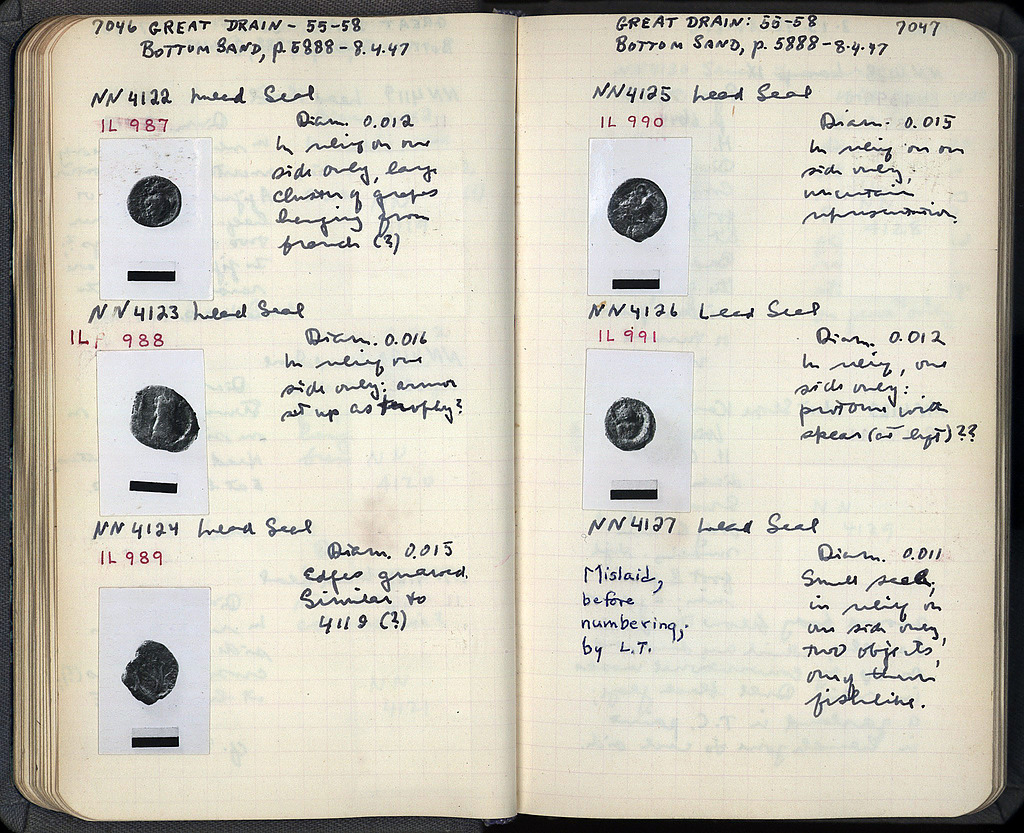 7046 GREAT DRAIN - 55-58
BOTTOM SAND, p. 5888 - 8.4.47
NN 4122 Lead Seal
IL 987
Diam. 0.012
In relief on one
side only, large
cluster of grapes
hanging from
branch (?)
NN 4123 Lead Seal
IL 988
Diam. 0.016
In relief one
side only: armor
set up as trophy?
NN 4124 Lead Seal
IL 989
Diam. 0.015
Edges gnawed.
Similar to
4119 (?)
GREAT DRAIN: 55-58 7047
BOTTOM SAND, p. 5888 - 8.4.47
NN 4125 Lead Seal
IL 990
Diam. 0.015
In relief on one
side only,
uncertain
representation.
NN 4126 Lead Seal
IL 991
Diam. 0.012
In relief, one
side only:
protome with
spear (at left)??
NN 4127 Lead Seal
Mislaid,
before
numbering,
by L.T.
Diam. 0.011
Small seal,
in relief on
one side only,
two objects,
one of them
fishlike.